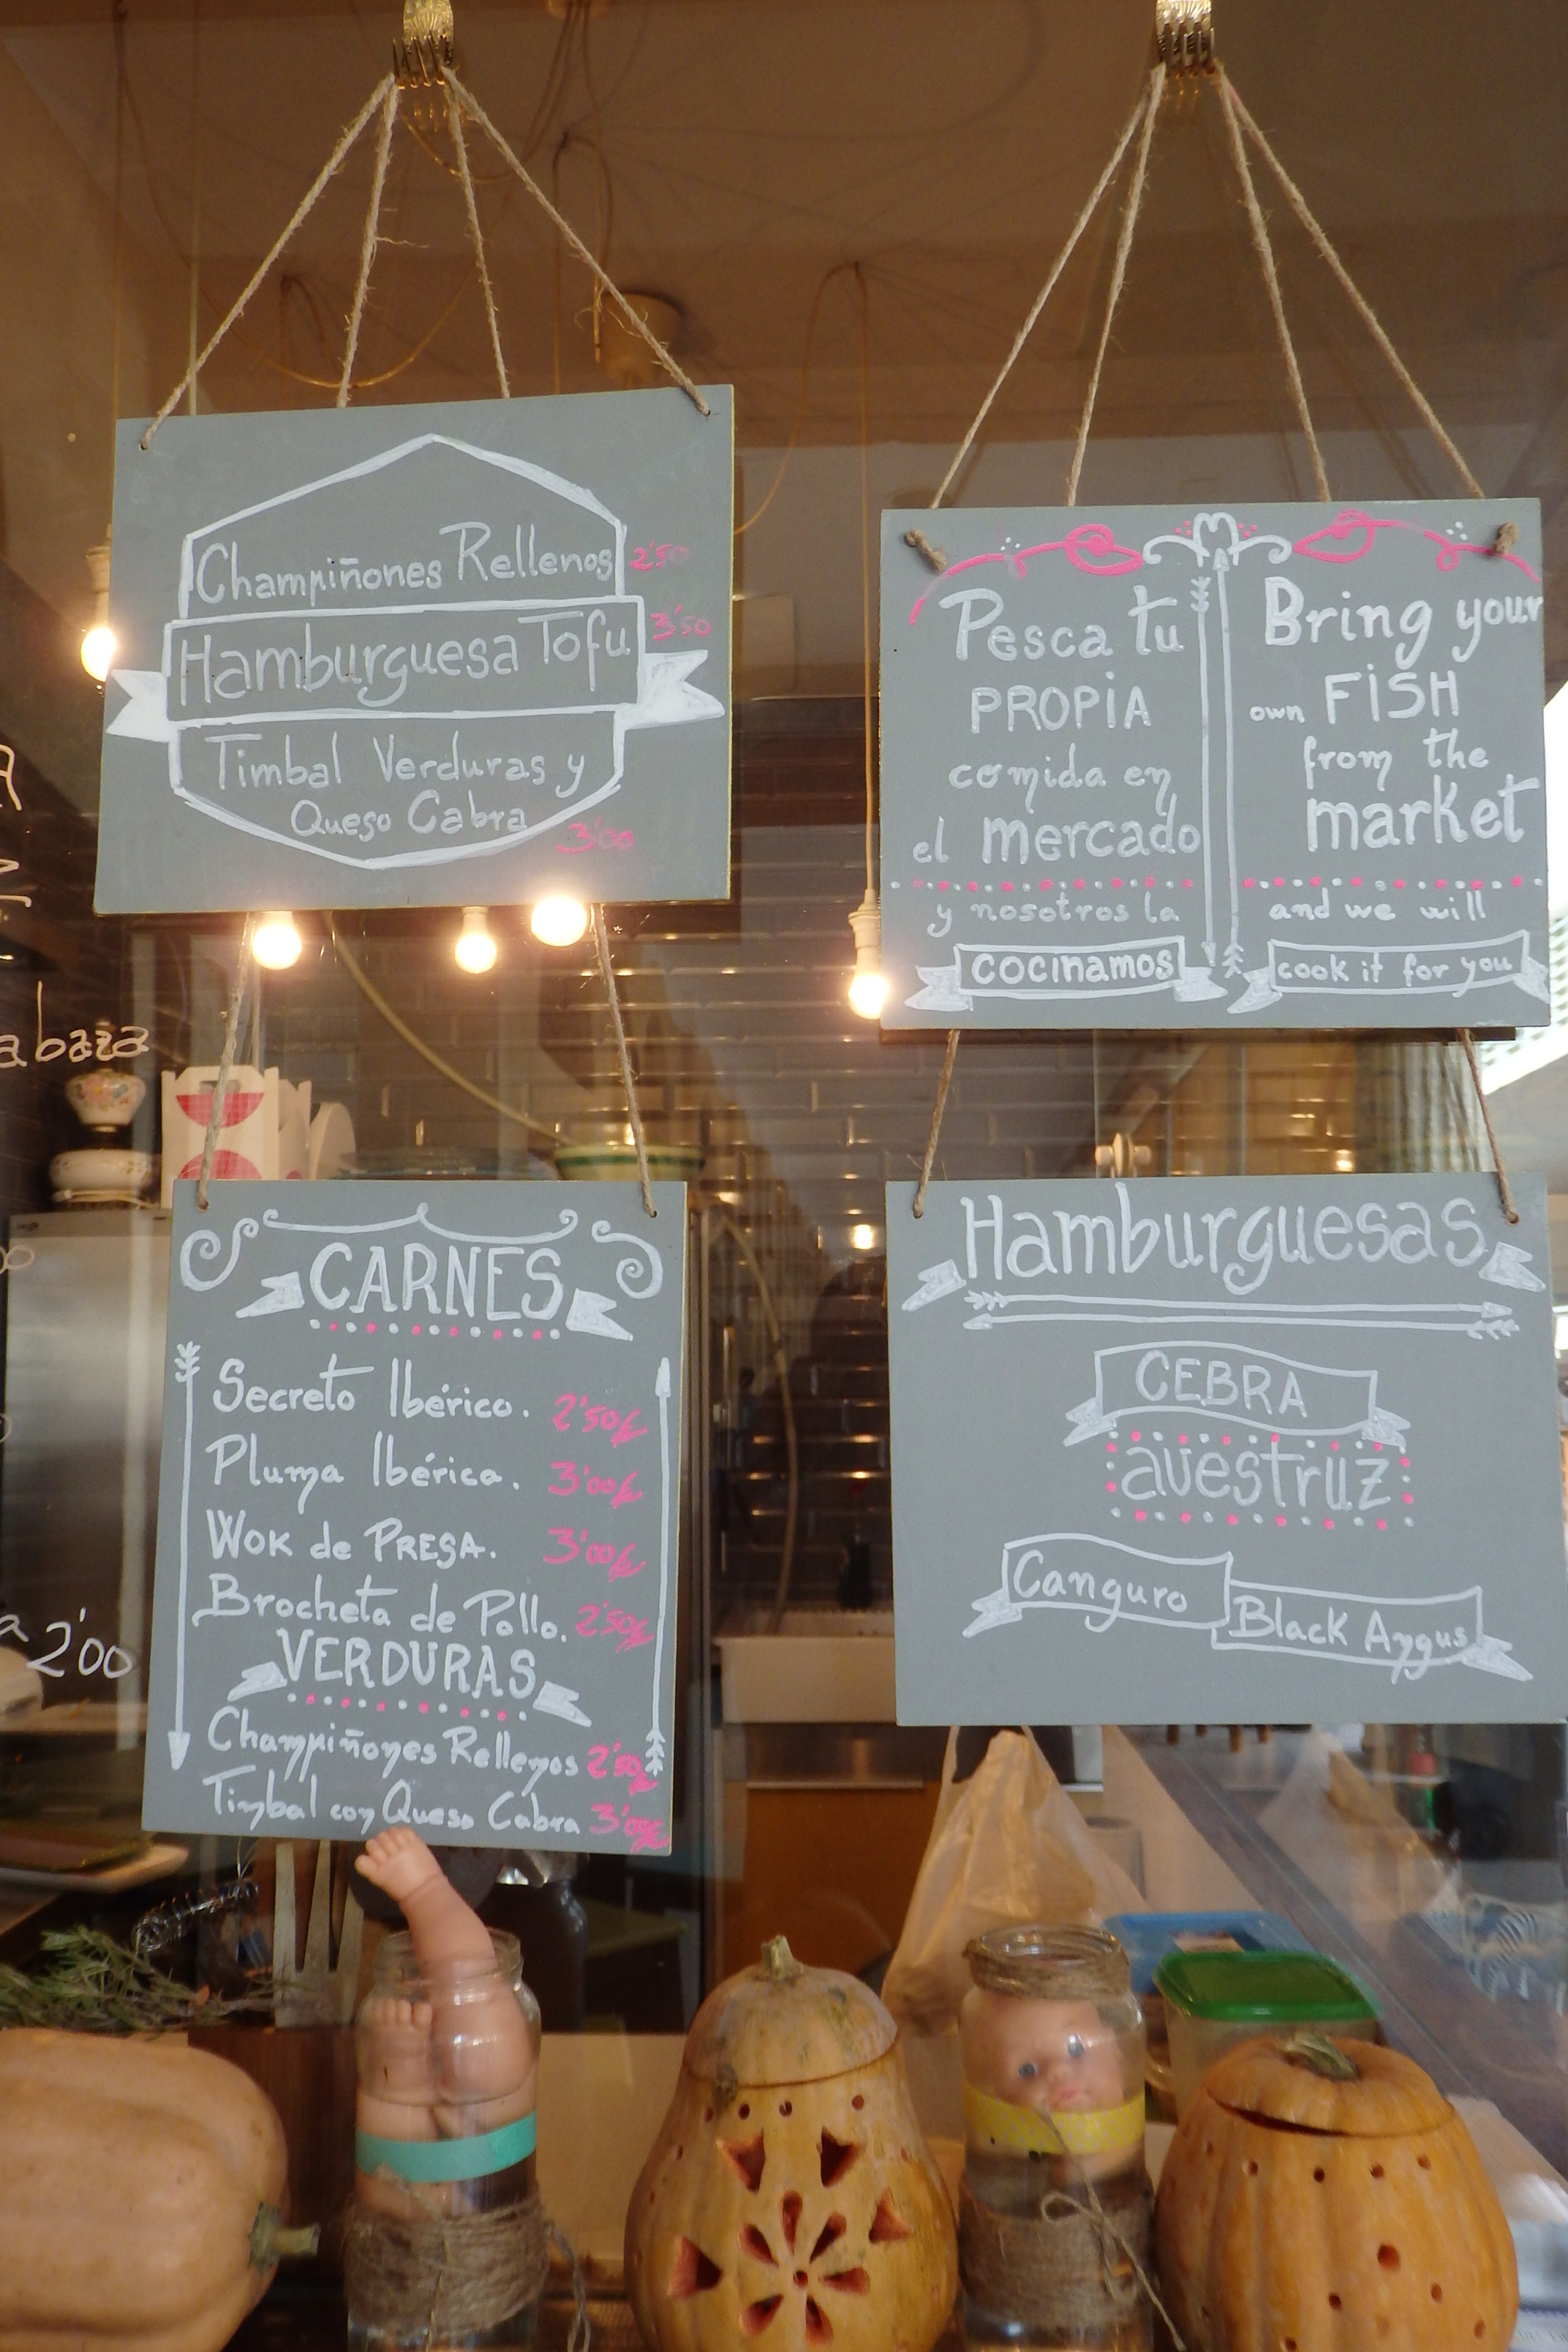 Champiñones Rellenos 2'50
Hamburguesa Tofu 3'50
Timbal Verduras y
Queso Cabra 3'00
Pesca tu
PROPIA
comida en
el mercado
y nosotros la
cocinamos
Bring your
own FISH
from the
market
and we will
cook it for you
abaza
CARNES
Secreto Ibérico. 2'50€
Pluma Ibérica. 3'00€
Wok de PRESA. 3'00€
Brocheta de Pollo. 2'50€
VERDURAS
Champiñones Rellenos 2'50€
Timbal con Queso Cabra 3'00€
Hamburguesas
CEBRA
avestruz
Canguro
Black Angus
a 2'00